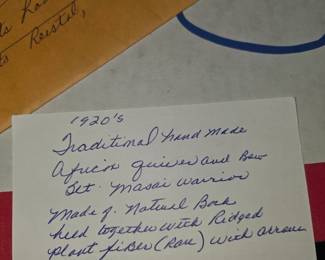 to Reistal,
1920's
Traditional hand made
African quiver and Bow
Set. Masai Warrior
Made of Natural Bark
held together with Ridged
plant fiber (Rare) with arrows